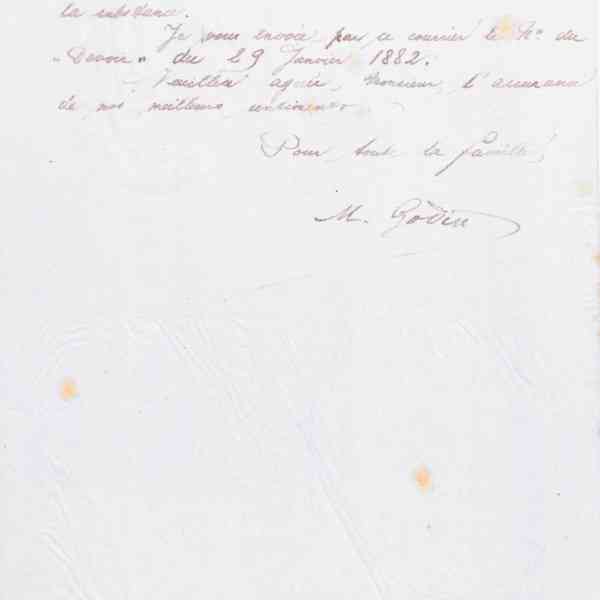 la substance.
Je vous envoie par ce courrier le No du
"Devoir" du 29 Janvier 1882.
Veuillez agréer, Monsieur, l'assurance
de nos meilleurs sentiments.
Pour toute la famille,
M. Godin